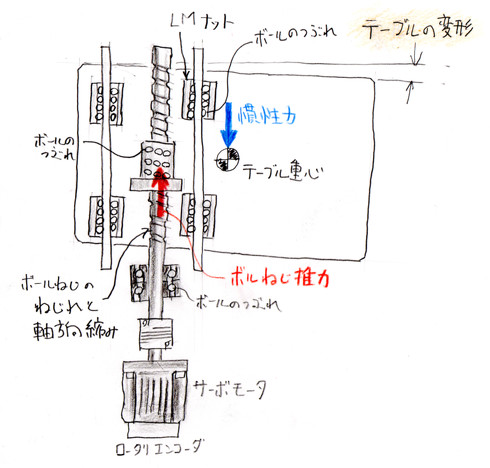 LMナット
ボールのつぶれ
テーブルの変形
慣性力
ボールの
つぶれ
テーブル重心
ボールねじの
ねじれと
軸方向縮み
ボルねじ推力
ボールのつぶれ
サーボモータ
ロータリエンコーダ